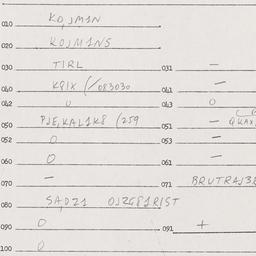 010 KO,JM1N
020 KOJM1NS
030 TIRL 031 —
040 K8IX (/083030 041 —
042 0 043 0
050 PJE,KAL1K8 (259 051 — QKAX,
052 0 053 —
060 0 061 —
070 — 071 BRUTRAJ3
080 SA,DZ1 OJZG81RIST
090 0 091 +
100 0